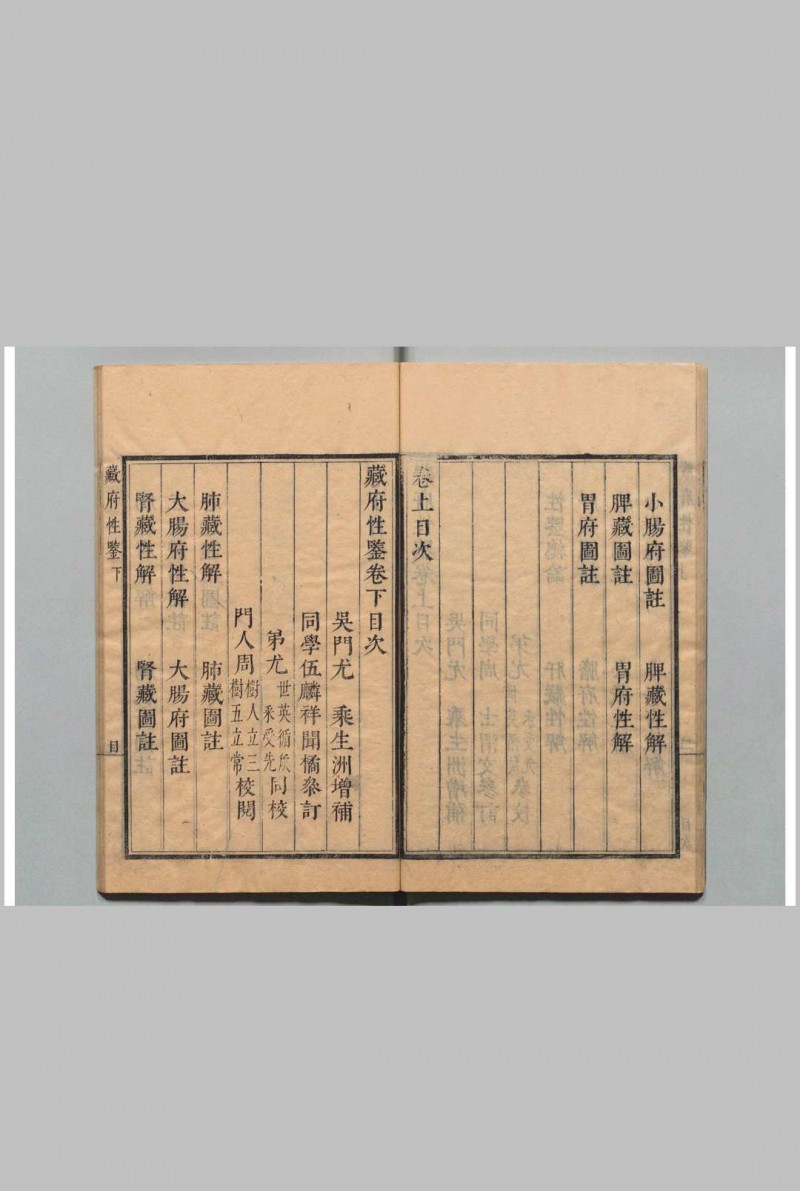 小腸府圖註　脾藏性解
脾藏圖註　胃府性解
胃府圖註
卷上目次
藏府性鑒卷下目次
吳門尤　乘生洲增補
同學伍麟祥聞橋叅訂
弟尤世英循 釆受先同校
門人周樹人立三樹五立常校閱
肺藏性解　肺藏圖註
大腸府性解　大腸府圖註
腎藏性解　腎藏圖註
藏府性鑒　下　目